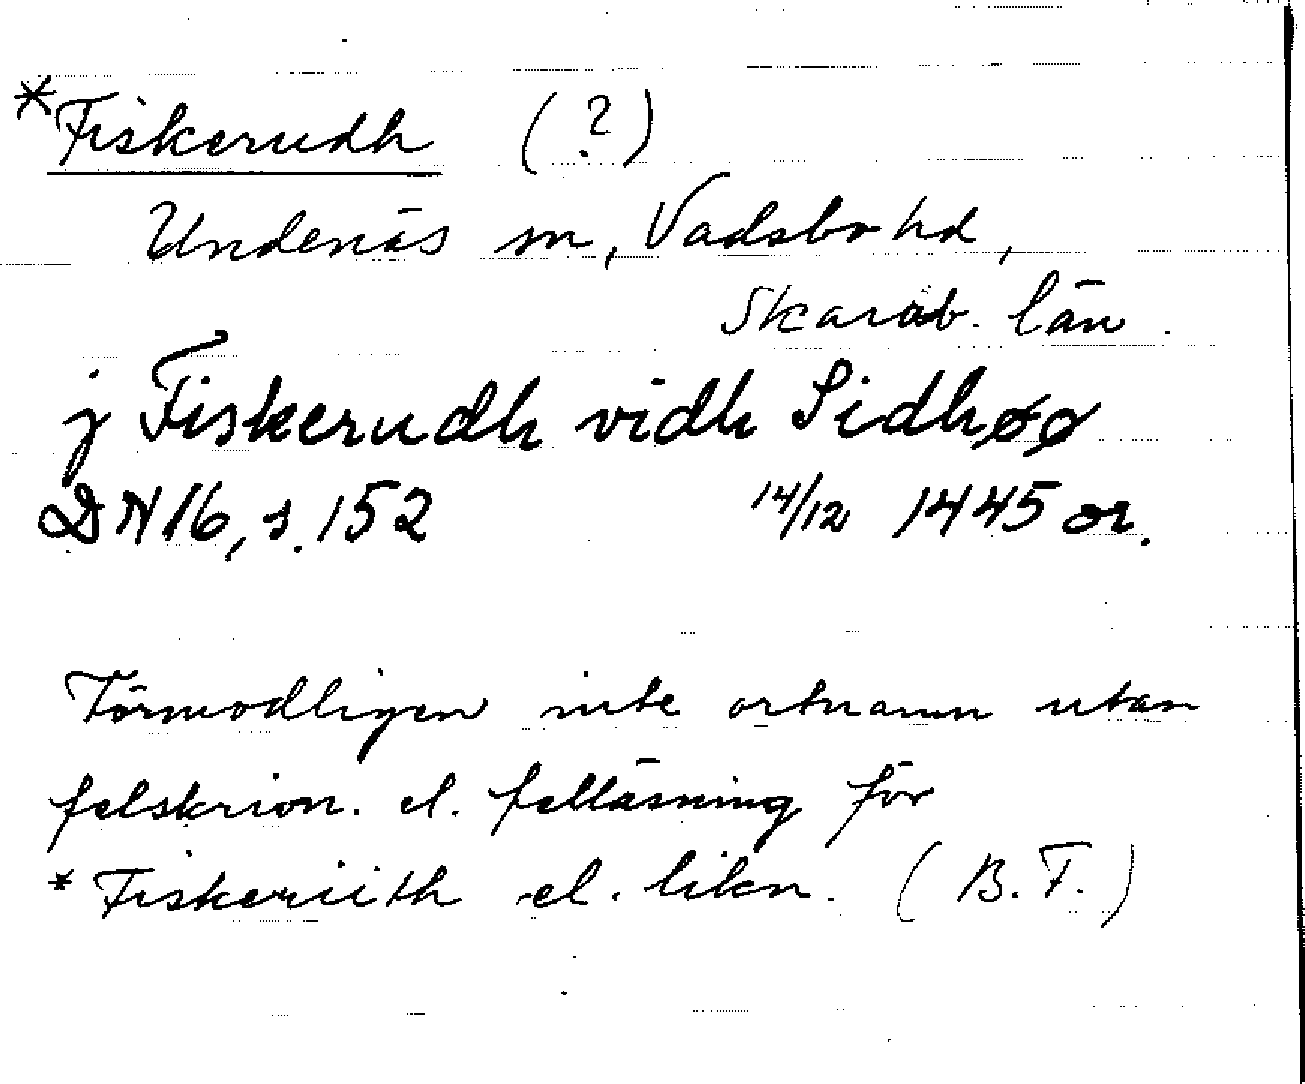 *Fiskerudh (?)
Undenäs sn, Vadsbo hd,
Skarab. län.
j Fiskerudh vidh Sidhøø
DN 16, s. 152 14/12 1445 or.
Förmodligen inte ortnamn utan
felskrivn. el. felläsning för
*Fiskeriith el. likn. (B.F.)